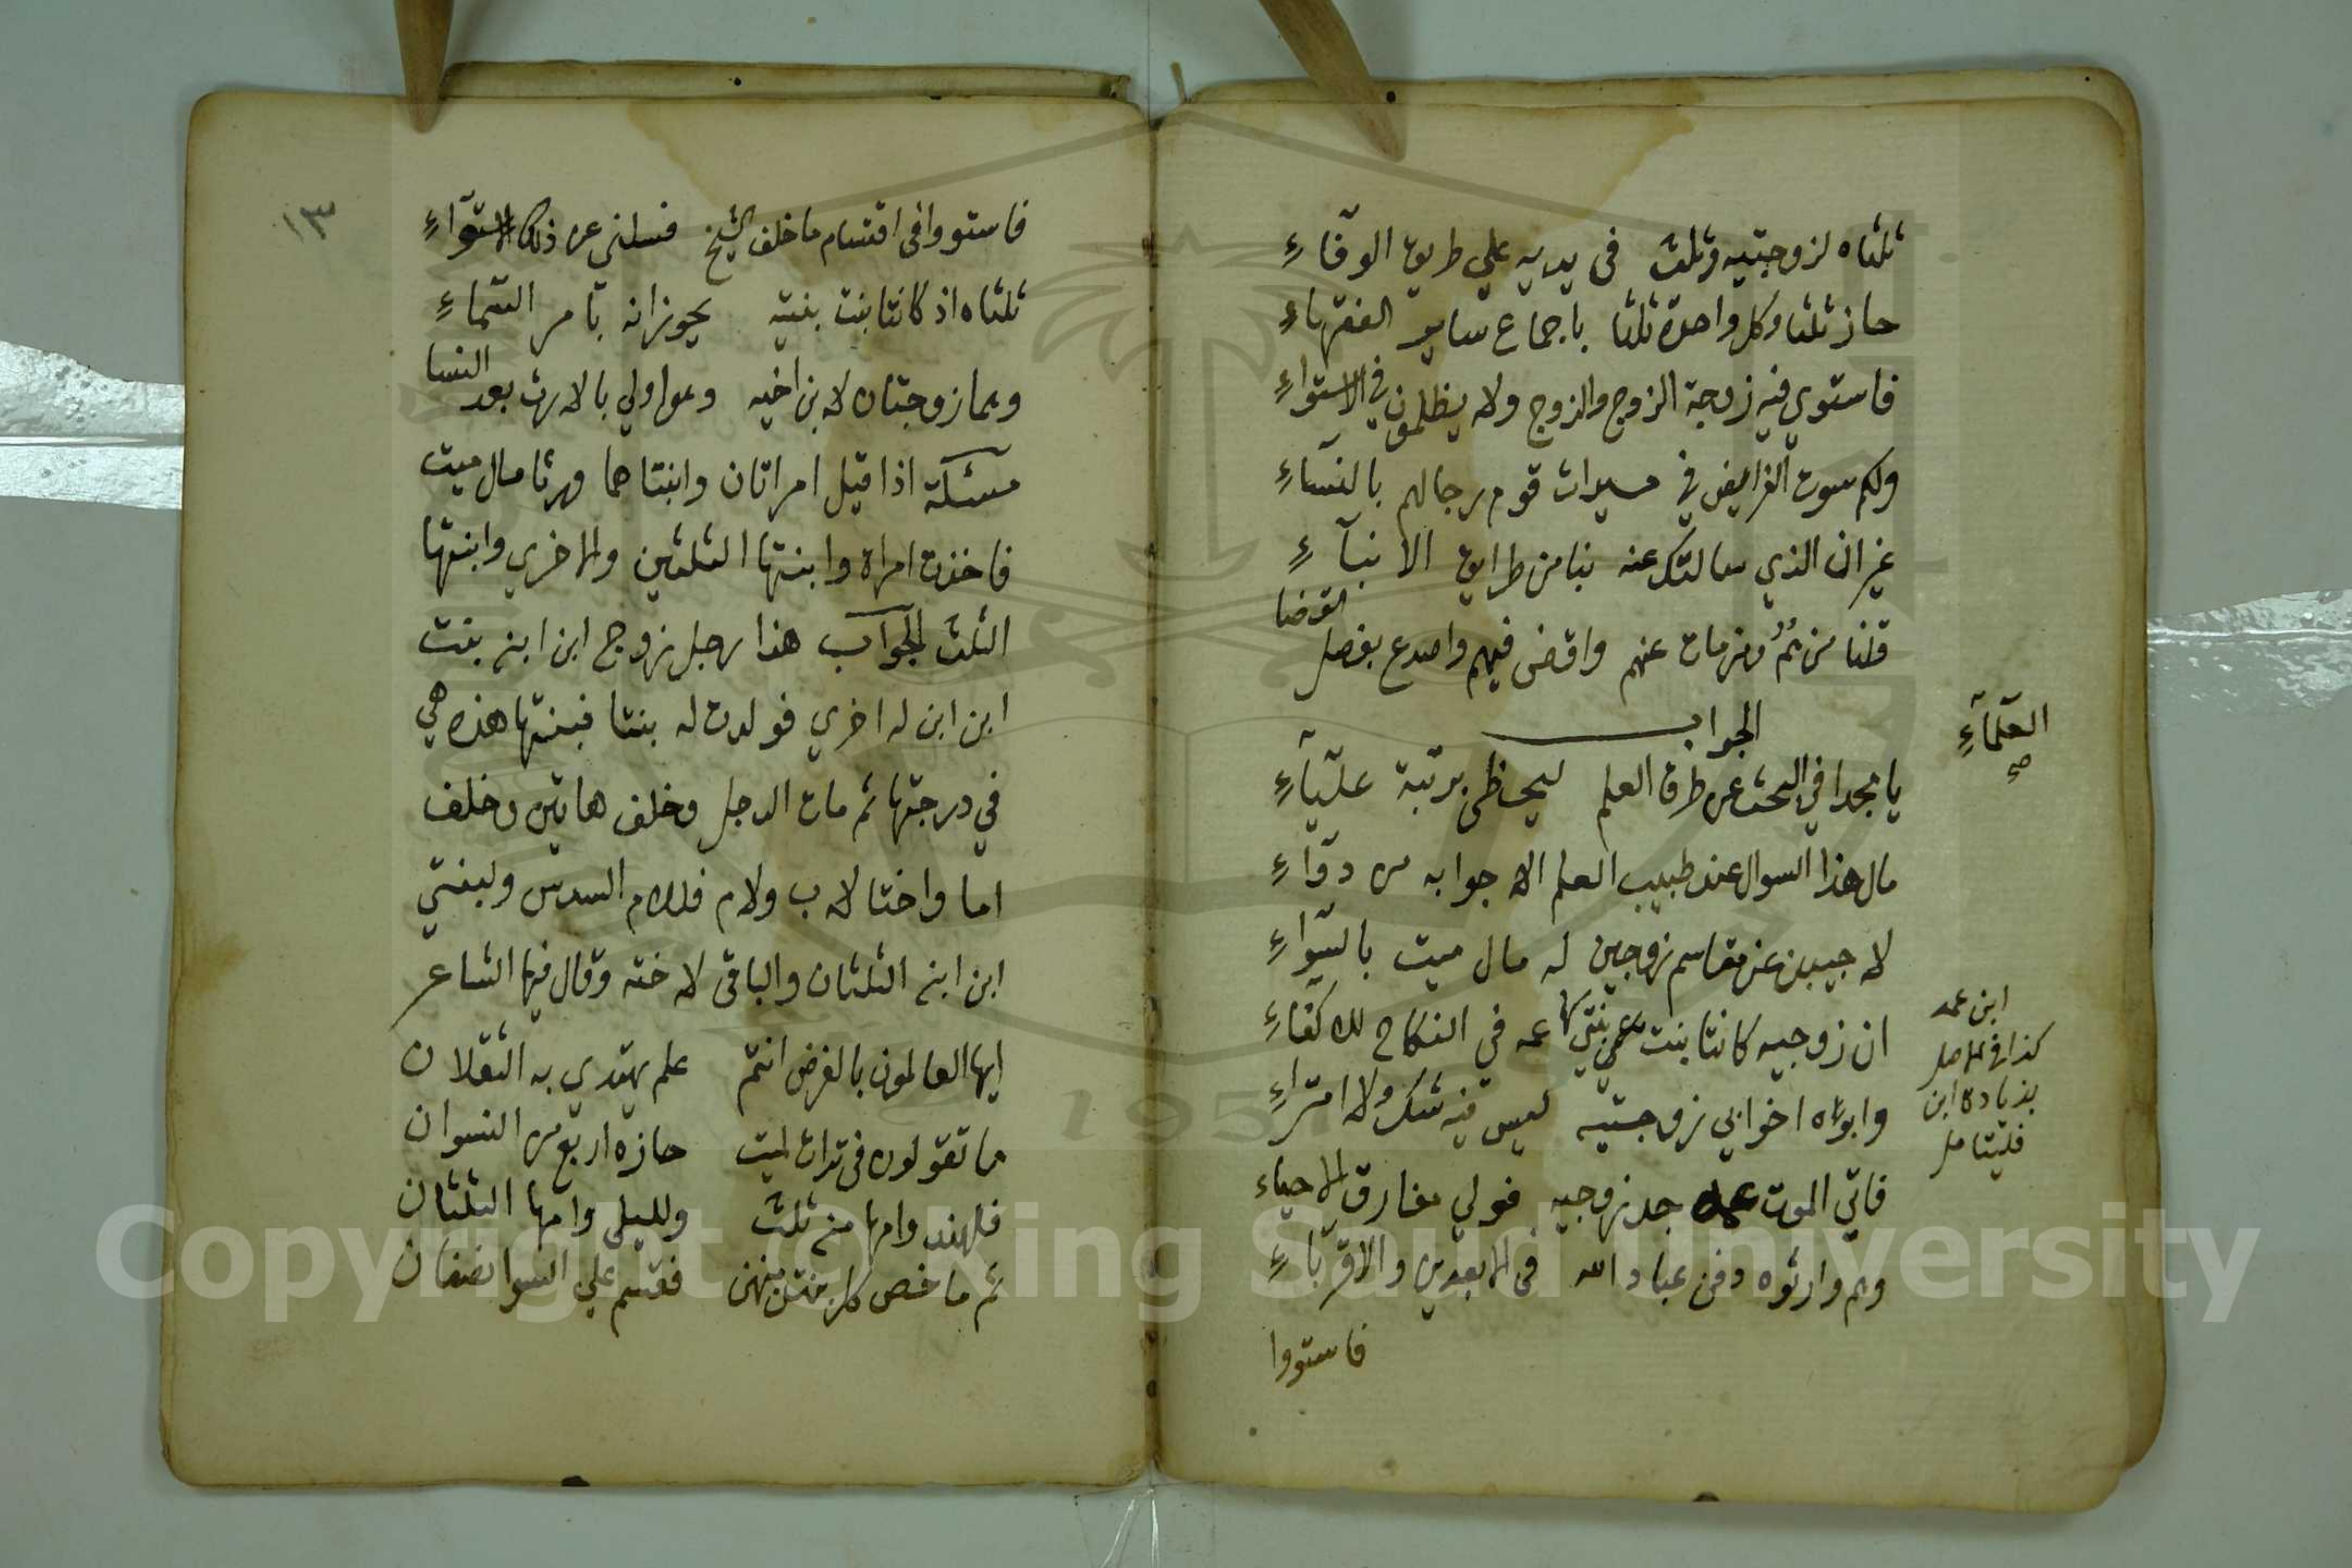 ثلثاه لزوجتيه وثلث في يديه علي طريق الوفاءِ
حاز ثلثا وكل واحدة ثلثا باجماع ساير الفقهاءِ
فاستوي فيه زوجة الزوج والزوج ولا يظلمون في الاستواءِ
ولكم سوت الفرايض في ميراث قوم رجالهم بالنساءِ
غير ان الذي سالتك عنه بنا من طرايق الانباءِ
قلنا من ثم ومن مات عنهم واقض فيهم واصدع بفصل القضا
العلماءِ
صح
الجواب
يا مجدا في البحث عن طرق العلم ليحظى برتبة علياءِ
مال هذا السوال عند طبيب العلم الا جوابه من دواءِ
لاجيبن عن مقاسم زوجين له مال ميت بالسواءِ
ان زوجيه كانتا بنت عمه في النكاح للاكفاءِ
ابن عمه
كذا في الاصل
بزيادة ابن
فليتامل
وابواه اخوا بي زوجتيه ليس فيه شك ولا امتراءِ
فاتي الموت جد زوجيه فولي مفارق الاحياء
وهم وارثوه دون عباد الله في الابعدين والاقرباءِ
فاستووا
١٣
فاستووا في اقتسام ما خلف الشيخ فسلني عن ذلك الاستواءِ
ثلثاه اذ كانتا بنت بنيه يحوزانه بامر السماءِ
وهما زوجتان لابن اخيه وهوا ولي بالارث بعد النسا
مسئلة اذا قيل امراتان وابنتاهما ورثا مال ميت
فاخذت امراة وابنتها الثلثين والاخري وابنتها
الثلث الجواب هذا رجل زوج ابن ابنه بنت
ابن ابن له اخري فولدت له بنتا فبنتها هذه هي
في درجتها ثم مات الرجل وخلف هاتين وخلف
اما واختا لاب ولام فللام السدس ولبنتي
ابن ابنه الثلثان والباقي لاخته وقال فيها الشاعر
ايها العالمون بالفرض انتم علم يهتدي به الثقلان
ما تقولون في تراث لميت حازه اربع من النسوان
فلهند وامها منه ثلث ولليلي وامها الثلثان
ثم ما خص كل بنتين منهن فقسم علي السوا نصفان
Copyright © King Saud University
1957